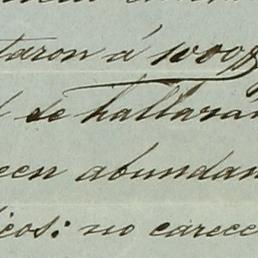 taron á 1000$
se hallará
een abundan
icos: no carece